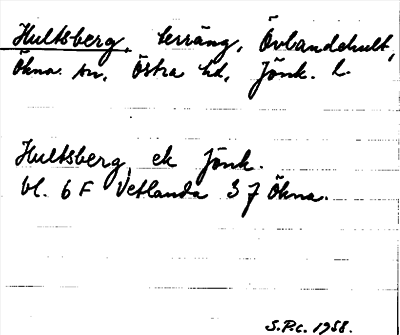 Hultsberg, terräng, Övlandehult,
Ökna sn, Östra hd, Jönk. l.
Hultsberg, ek Jönk.
bl. 6 F Vetlanda 3 f Ökna.
S.P.c. 1958.